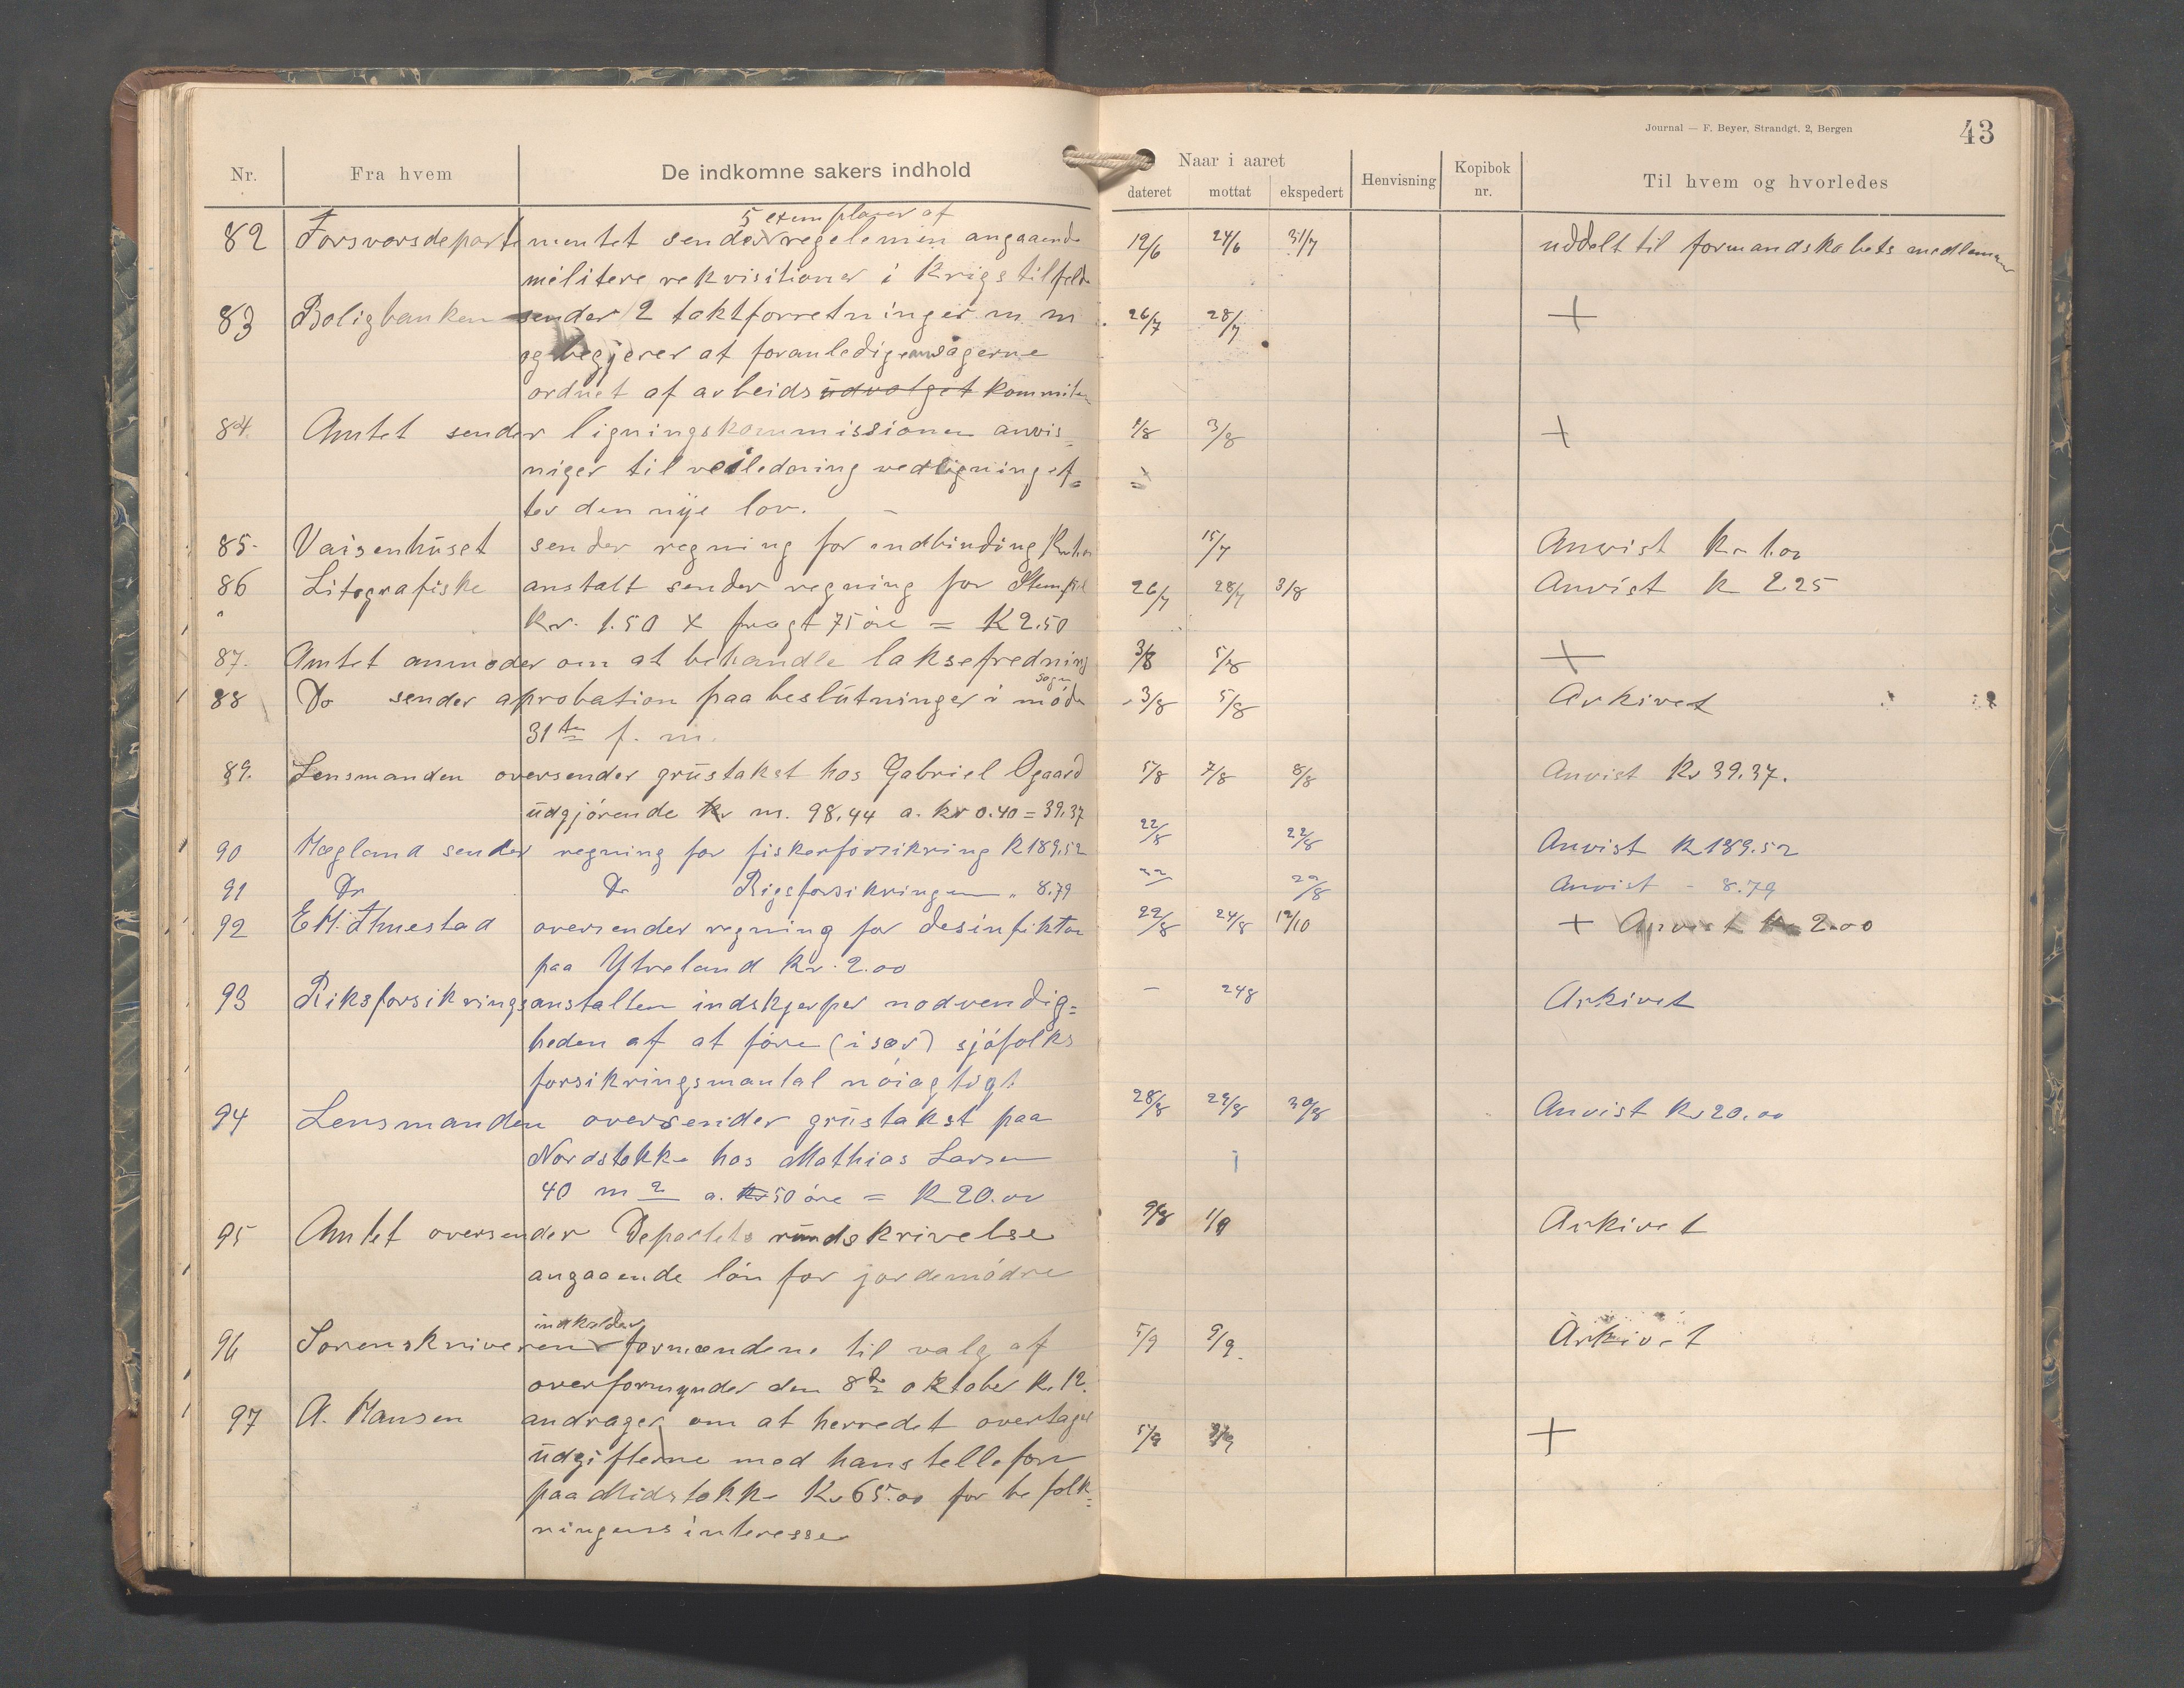 Journal — F. Beyer, Strandgt. 2, Bergen
43
Nr. Fra hvem De indkomne sakers indhold Naar i aaret dateret mottat ekspedert Henvisning Kopibok nr. Til hvem og hvorledes
5 exemplarer af
82 Forsvarsdepartementet sender regelemen angaaende 12/6 24/6 31/7 uddelt til formandskabets medlemmer
militere rekvisitioner i Krigstilfelde
83 Boligbanken sender 2 taktforretninger m m 26/7 28/7 +
og begjærer at foranledige sagerne
ordnet af arbeidsudvalget kommiteen
84. Amtet sender ligningskommissionen anvis= 1/8 3/8 +
niger til veiledning ved ligning ef=
ter den nye lov.
85- Vaisenhuset sender regning for indbinding 15/7 Anvist Kr 1.00
86 Litografiske anstalt sender regning for Stempel 26/7 28/7 3/8 Anvist K 2.25
Kr. 1.50 X fragt 75 øre = K 2.50
87. Amtet anmoder om at behandle laksefredning 3/8 5/8 +
sogn
88 Do sender aprobation paa beslutninger i møde 3/8 5/8 Arkivet
31te f. m.
89. Lensmanden oversender grustakst hos Gabriel Ogaard 5/8 7/8 8/8 Anvist Kr 39.37.
udgjørende kr m. 98,44 a. kr 0.40 = 39.37
90 Hægland sender regning for fiskerforsikring K 189,52 22/8 22/8 Anvist K 189.52
91 Do Do Rigsforsikringen „ 8.79 22/8 Anvist - 8.79
92 E. H. Thuestad oversender regning for desinfiktion 22/8 24/8 12/10 + Anvist Kr 2.00
paa Ytreland Kr. 2.00
93 Riksforsikringsanstalten indskjerper nodvendig= - 24/8 Arkivet
heden af at føre (især) sjøfolks
forsikringsmantal nøiagtigt
94 Lensmanden oversender grustakst paa 28/8 29/8 30/8 Anvist Kr 20.00
Nordstokke hos Mathias Larsen
40 m 2 a. kr 50 øre = K 20.00
95 Amtet oversender Departets rundskrivelse 1/9 Arkivet
angaaende løn for jordemødre
indkalder
96 Sorenskriveren formændene til valg af 5/9 9/9 Arkivet
overformynder den 8de oktober K. 12.
97 A. Hansen andrager om at herredet overtager 5/9 +
udgifterne med hans tellefon
paa Midstokke Kr 65.00 for befolk=
ningens interesse